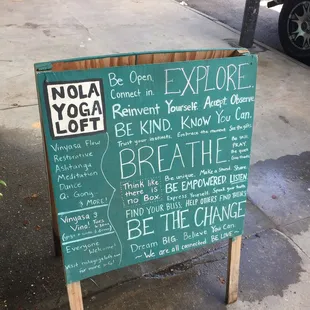 NOLA
YOGA
LOFT
Vinyasa Flow
Restorative
Ashtanga
Meditation
Dance
Qi Gong
& MORE!
Vinyasa &
Vino!
Everyone
Welcome!
for more info.
Be Open. EXPLORE.
Connect in.
Reinvent Yourself. Accept. Observe.
BE KIND. Know You Can.
Trust your Embrace the moment.
BREATHE.
BE still
PRAY.
Think like
there is
no Box.
Be unique. Make a Share.
BE EMPOWERED. LISTEN.
Express Yourself. Speak your truth.
FIND YOUR BLISS. HELP OTHERS FIND THEIRS.
BE THE CHANGE
Dream BIG. Believe You Can.
- We are all connected. BE LOVE -